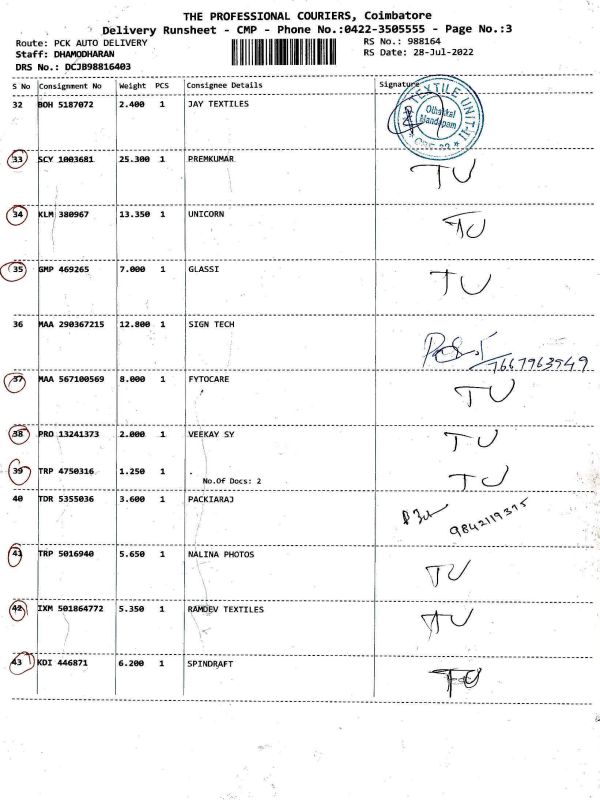 THE PROFESSIONAL COURIERS, Coimbatore
Delivery Runsheet - CMP - Phone No.:0422-3505555 - Page No.:3
Route: PCK AUTO DELIVERY
RS No.: 988164
Staff: DHAMODHARAN
RS Date: 28-Jul-2022
DRS No.: DCJB98816403
S No Consignment No Weight PCS Consignee Details Signature
32 BOH 5187072 2.400 1 JAY TEXTILES
TEXTILE UNIT-II
Othakkal
Mandapam
33 SCY 1003681 25.300 1 PREMKUMAR TU
34 KLM 380967 13.350 1 UNICORN TU
35 GMP 469265 7.000 1 GLASSI TU
36 MAA 290367215 12.800 1 SIGN TECH
7667963549
37 MAA 567100569 8.000 1 FYTOCARE TU
38 PRO 13241373 2.000 1 VEEKAY SY TU
39 TRP 4750316 1.250 1 . TU
No.Of Docs: 2
40 TDR 5355036 3.600 1 PACKIARAJ
9842119375
41 TRP 5016940 5.650 1 NALINA PHOTOS TU
42 IXM 501864772 5.350 1 RAMDEV TEXTILES TU
43 KDI 446871 6.200 1 SPINDRAFT TU